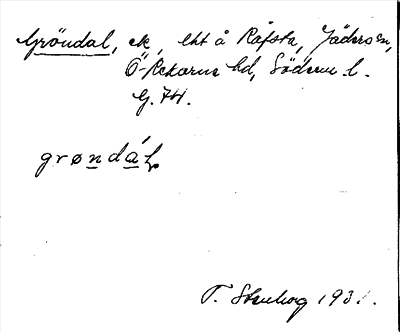 Gröndal, ek, lht å Råfsta, Jäders sn,
Ö-Rekarne hd, Söderm. l.
G. 74.
grøndál
T. Stenberg 193